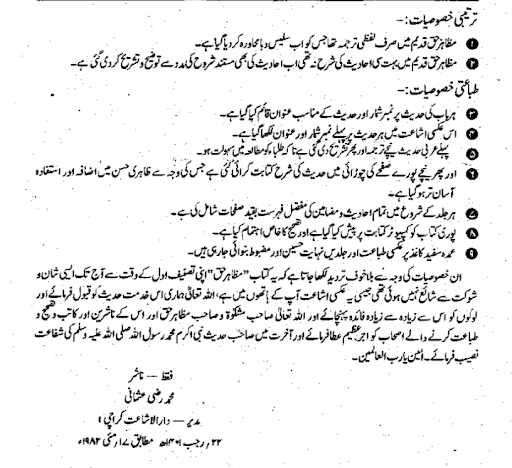 ترتیبی خصوصیات :-
۱ مظاہر حق قدیم میں صرف لفظی ترجمہ تھا جس کو اب سلیس و با محاورہ کر دیا گیا ہے۔
۲ مظاہر حق قدیم میں بہت سی احادیث کی شرح نہ تھی اب احادیث کی بھی مستند شروح کی مدد سے توضیح و تشریح کر دی گئی ہے۔
طباعتی خصوصیات :-
۳ ہر باب کی حدیث پر نمبر شمار اور حدیث کے مناسب عنوان قائم کیا گیا ہے۔
۴ اس عکسی اشاعت میں ہر حدیث پر پہلے نمبر شمار اور عنوان لکھا گیا ہے۔
۵ پہلے عربی حدیث نیچے ترجمہ اور پھر تشریح دی گئی ہے تاکہ طلباء کو مطالعہ میں سہولت ہو۔
۶ اور پھر نیچے پورے صفحے کی چوڑائی میں حدیث کی شرح کتابت کرائی گئی ہے جس کی وجہ سے ظاہری حسن میں اضافہ اور استفادہ
آسان تر ہو گیا ہے۔
۷ ہر جلد کے شروع میں تمام احادیث و مضامین کی مفصل فہرست بقید صفحات شامل کی ہے۔
۸ پوری کتاب کو کمپیوٹر کتابت پر پیش کیا گیا ہے اور تصحیح کا خاص اہتمام کیا ہے۔
۹ عمدہ سفید کاغذ پر عکسی طباعت اور جلدیں نہایت حسین اور مضبوط بنوائی جا رہی ہیں۔
ان خصوصیات کی وجہ سے بلا خوف تردید لکھا جاتا ہے کہ یہ کتاب ”مظاہر حق“ اپنی تصنیف اول کے وقت سے آج تک ایسی شان و
شوکت سے شائع نہیں ہوئی تھی جیسی یہ عکسی اشاعت آپ کے ہاتھوں میں ہے، اللہ تعالیٰ ہماری اس خدمت حدیث کو قبول فرمائے اور
لوگوں کو اس سے زیادہ سے زیادہ فائدہ پہنچائے اور اللہ تعالیٰ صاحب مشکوٰۃ و صاحب مظاہر حق اور اس کے ناشرین اور کاتب و مصحح و
طباعت کرنے والے اصحاب کو اجر عظیم عطا فرمائے اور آخرت میں صاحب حدیث نبی اکرم محمد رسول اللہ صلی اللہ علیہ وسلم کی شفاعت
نصیب فرمائے۔ آمین یا رب العالمین۔
فقط — ناشر
محمد رضی عثمانی
مدیر — دارالاشاعت کراچی ۱
۲۲، رجب ۱۴۰۱ھ مطابق ۱۷، مئی ۱۹۸۲ء